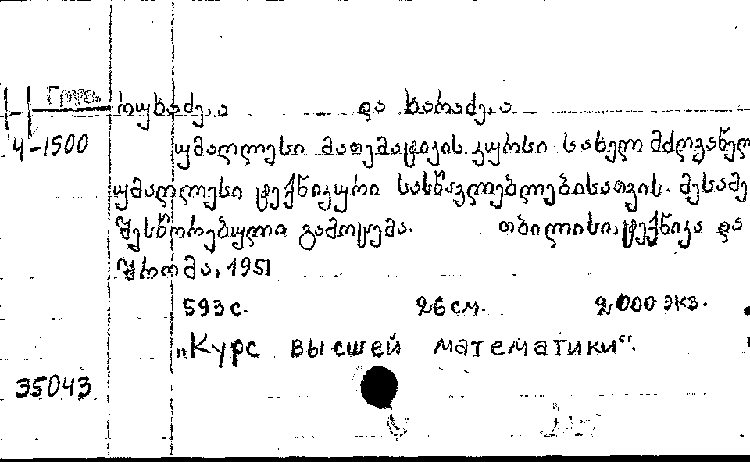 Груз.
რუხაძე.ა და ხარაძე.ა
4-1500
უმაღლესი მათემატიკის კურსი სახელმძღვანელ
უმაღლესი ტექნიკური სასწავლებლებისათვის. მესამე
შესწორებული გამოცემა. თბილისი, ტექნიკა და
შრომა, 1951
593 с. 26 см. 2000 экз.
„Курс высшей математики".
35043